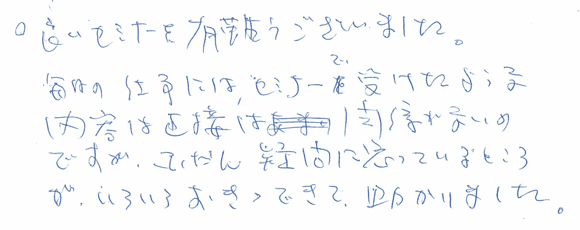 ○ 良いセミナーを有難うございました。
毎日の仕事には、セミナーで受けたような
内容は直接は関係がないの
ですが、ふだん疑問に思っているところ
が、いろいろおきってきて、助かりました。